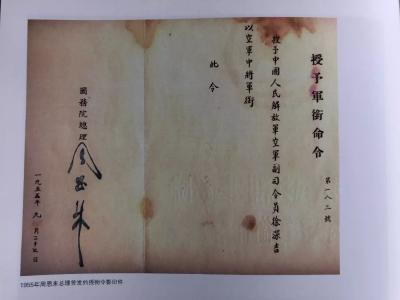 授予軍銜命令
第一八二號
授予中國人民解放軍空軍副司令員徐深吉
以空軍中將軍銜
此令
國務院總理
周恩来
一九五五年九月二十七日
1955年周恩来总理签发的授衔令影印件